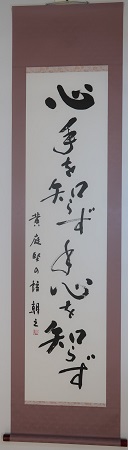 心手を知らず手心を知らず
黄庭堅の語 朝之